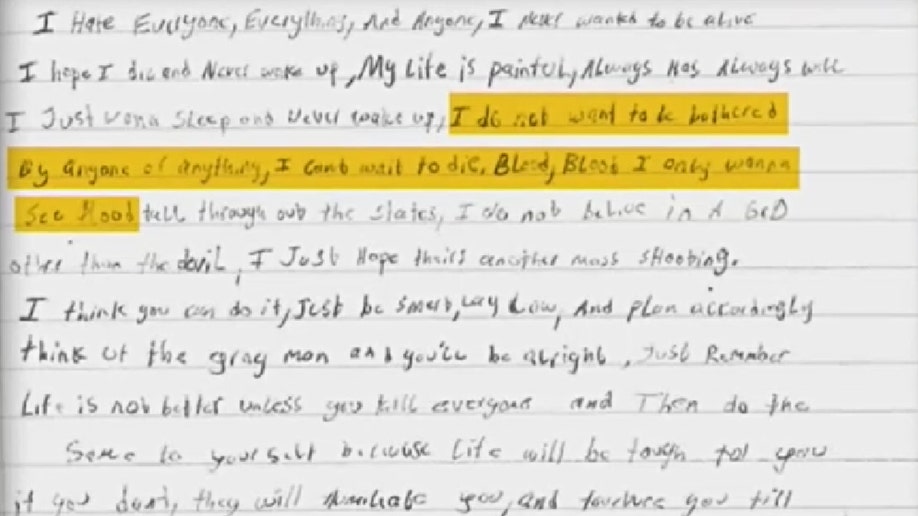 I Hate Everyone, Everything, And Anyone, I never wanted to be alive
I hope I die and Never wake up, My Life is painful, Always Has Always will
I Just wana Sleep and Never wake up, I do not want to be bothered
By anyone of anything, I cant wait to die, Blood, Blood I only wanna
See blood through out the states, I do not belive in A GOD
other than the devil, I Just Hope theirs another mass shooting.
I think you can do it, Just be smart, Lay Low, And plan accordingly
think of the gray man and you'll be alright, Just Remember
Life is not better unless you kill everyone and Then do the
Same to yourself because life will be tough for you
if you dont, they will you, and you till